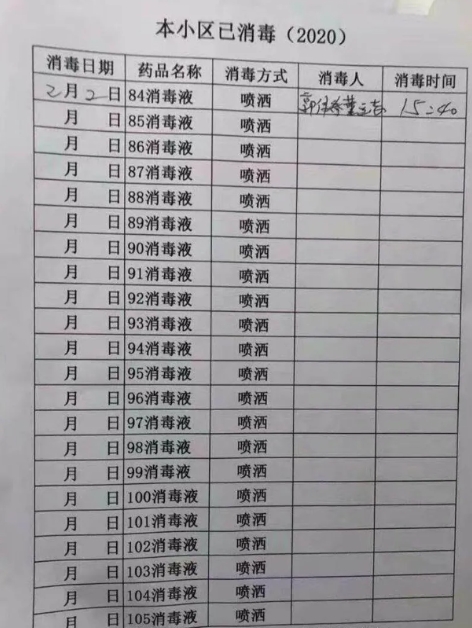 本小区已消毒（2020）
消毒日期 药品名称 消毒方式 消毒人 消毒时间
2月2日 84消毒液 喷洒 15:40
月 日 85消毒液 喷洒
月 日 86消毒液 喷洒
月 日 87消毒液 喷洒
月 日 88消毒液 喷洒
月 日 89消毒液 喷洒
月 日 90消毒液 喷洒
月 日 91消毒液 喷洒
月 日 92消毒液 喷洒
月 日 93消毒液 喷洒
月 日 94消毒液 喷洒
月 日 95消毒液 喷洒
月 日 96消毒液 喷洒
月 日 97消毒液 喷洒
月 日 98消毒液 喷洒
月 日 99消毒液 喷洒
月 日 100消毒液 喷洒
月 日 101消毒液 喷洒
月 日 102消毒液 喷洒
月 日 103消毒液 喷洒
月 日 104消毒液 喷洒
月 日 105消毒液 喷洒